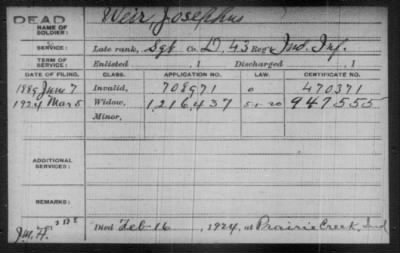 DEAD
NAME OF SOLDIER: Weir, Josephus
SERVICE: Late rank, Sgt Co. D, 43 Reg't Ind. Inf.
TERM OF SERVICE: Enlisted , 1 Discharged , 1
DATE OF FILING. CLASS. APPLICATION NO. LAW. CERTIFICATE NO.
1889 June 7 Invalid, 708971 0 470371
1924 Mar 5 Widow, 1,216,437 5-1-20 947555
Minor,
ADDITIONAL SERVICES:
REMARKS:
Died Feb 16 , 1924, at Prairie Creek, Ind